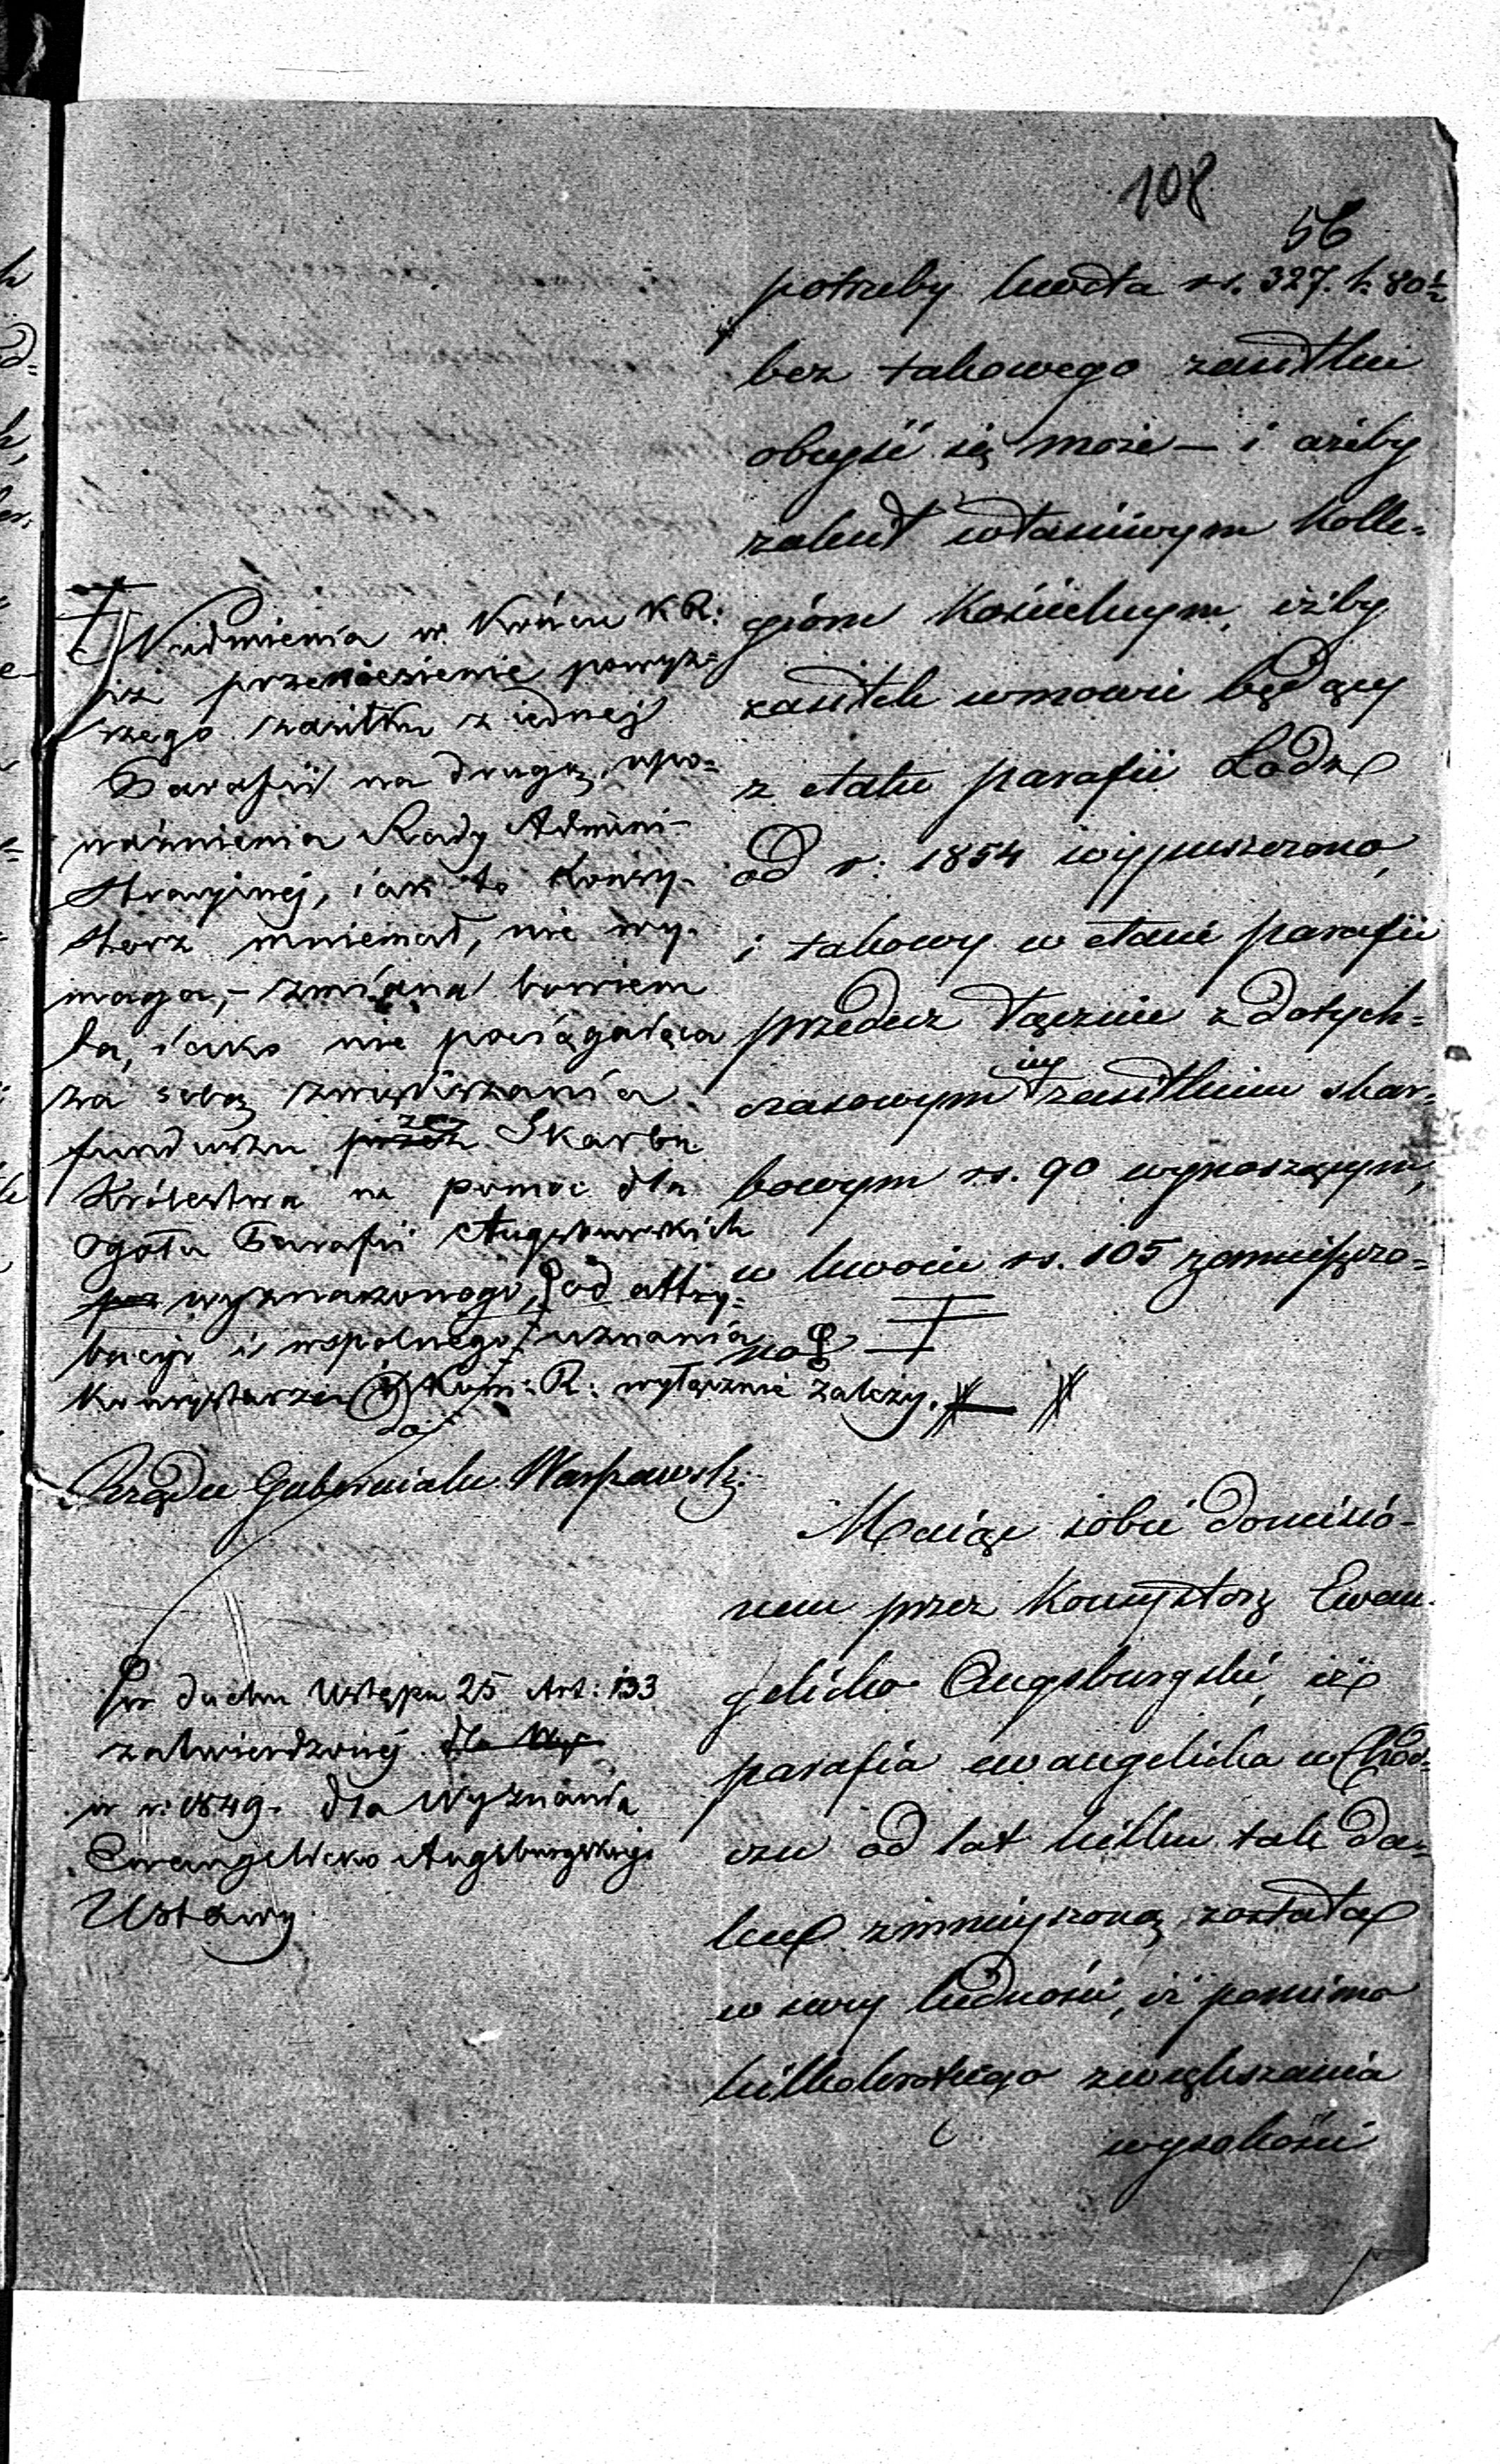 108
56
potrzeby kwota rs. 327. k. 80½
bez takowego zasiłku
obejść się może — i ażeby
zalecił właściwym Kolle-
giom Kościelnym, iżby
zasiłek w mowie będący
z etatu parafii Łodz
od r: 1854 wypuszczono,
i takowy w etacie parafii
przedecz łącznie z dotych-
czasowym zasiłkiem skar-
bowym rs. 90 wynoszącym,
w kwocie rs. 105 zamieszczo-
no
Maiąc sobie doniesio-
nem przez Konsystorz Ewan-
gelicko Augsburgski, iż
parafia ewangelicka w Chod-
czu od lat kilku tak da-
lece zmnieyszoną została
w swey ludności, iż pomimo
kilkakrotnego zwiększania
wysokości
Nadmienia w. Końcu K R:
iż przeniesienie powyż-
szego zasiłku z iednej
Parafii na drugą, upo-
ważnienia Rady Admini-
stracyjnej, iak to Konsy-
storz mniemał, nie wy-
maga, - zmiana bowiem
ta, iako nie pociągaiąca
za sobą zwiększania
funduszu przez ze Skarbu
Królestwa na pomoc dla
ogółu Parafii Augsburskich
wyznaczonego, od attry-
bucyi i wspolnego uznania
Konsystorza i Kom: R: wyłącznie zależy.
do
Rządu Gubernialn. Warszawsk:
w duchu Ustępu 25 Art: 133
zatwierdzonej dla Wy
w r: 1849. dla Wyznania
Ewangelicko Augsburgskiego
Ustawy